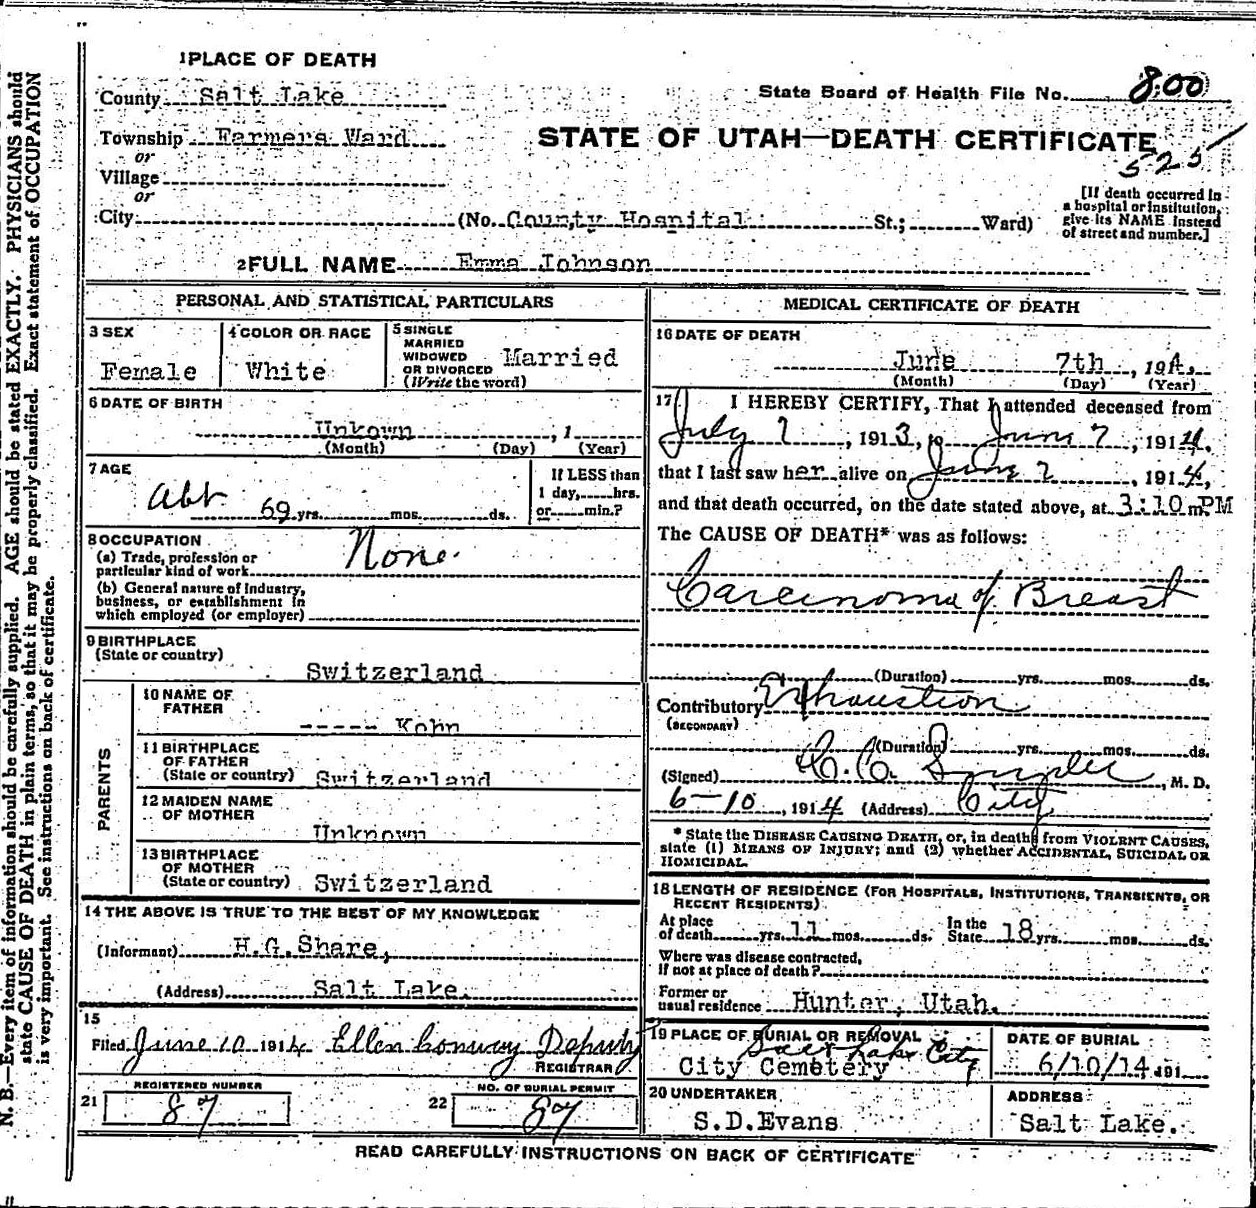 1 PLACE OF DEATH
County Salt Lake
State Board of Health File No. 800
Township Farmers Ward
or
STATE OF UTAH—DEATH CERTIFICATE
525
Village
or
City (No. County Hospital St.; Ward)
[If death occurred in a hospital or institution, give its NAME instead of street and number.]
2 FULL NAME Emma Johnson
PERSONAL AND STATISTICAL PARTICULARS
3 SEX
Female
4 COLOR OR RACE
White
5 SINGLE
MARRIED
WIDOWED
OR DIVORCED
(Write the word)
Married
6 DATE OF BIRTH
Unkown , 1
(Month) (Day) (Year)
7 AGE
Abt 69 yrs. mos. ds.
If LESS than
1 day, hrs.
or min.?
8 OCCUPATION
(a) Trade, profession or
particular kind of work
None.
(b) General nature of industry,
business, or establishment in
which employed (or employer)
9 BIRTHPLACE
(State or country)
Switzerland
PARENTS
10 NAME OF
FATHER
----- Kohn
11 BIRTHPLACE
OF FATHER
(State or country) Switzerland
12 MAIDEN NAME
OF MOTHER
Unknown
13 BIRTHPLACE
OF MOTHER
(State or country) Switzerland
14 THE ABOVE IS TRUE TO THE BEST OF MY KNOWLEDGE
(Informant) H.G.Share,
(Address) Salt Lake.
15
Filed June 10 1914 Ellen Conway Deputy
REGISTRAR
21 REGISTERED NUMBER
87
22 NO. OF BURIAL PERMIT
87
MEDICAL CERTIFICATE OF DEATH
16 DATE OF DEATH
June 7th , 1914.
(Month) (Day) (Year)
17 I HEREBY CERTIFY, That I attended deceased from
July 7 , 1913, to June 7 , 1914.
that I last saw her alive on June 7 , 1914,
and that death occurred, on the date stated above, at 3:10 m. PM
The CAUSE OF DEATH* was as follows:
Carcinoma of Breast
(Duration) yrs. mos. ds.
Contributory Exhaustion
(SECONDARY)
(Duration) yrs. mos. ds.
(Signed) Snyder , M. D.
6-10 , 1914 (Address) City
* State the DISEASE CAUSING DEATH, or, in deaths from VIOLENT CAUSES,
state (1) MEANS OF INJURY; and (2) whether ACCIDENTAL, SUICIDAL OR
HOMICIDAL.
18 LENGTH OF RESIDENCE (FOR HOSPITALS, INSTITUTIONS, TRANSIENTS, OR
RECENT RESIDENTS)
At place
of death yrs. 11 mos. ds.
In the
State 18 yrs. mos. ds.
Where was disease contracted,
if not at place of death?
Former or
usual residence Hunter, Utah.
19 PLACE OF BURIAL OR REMOVAL
Salt Lake City
City Cemetery
DATE OF BURIAL
6/10/14 191
20 UNDERTAKER
S.D.Evans
ADDRESS
Salt Lake.
READ CAREFULLY INSTRUCTIONS ON BACK OF CERTIFICATE
N. B.—Every item of information should be carefully supplied. AGE should be stated EXACTLY. PHYSICIANS should
state CAUSE OF DEATH in plain terms, so that it may be properly classified. Exact statement of OCCUPATION
is very important. See instructions on back of certificate.